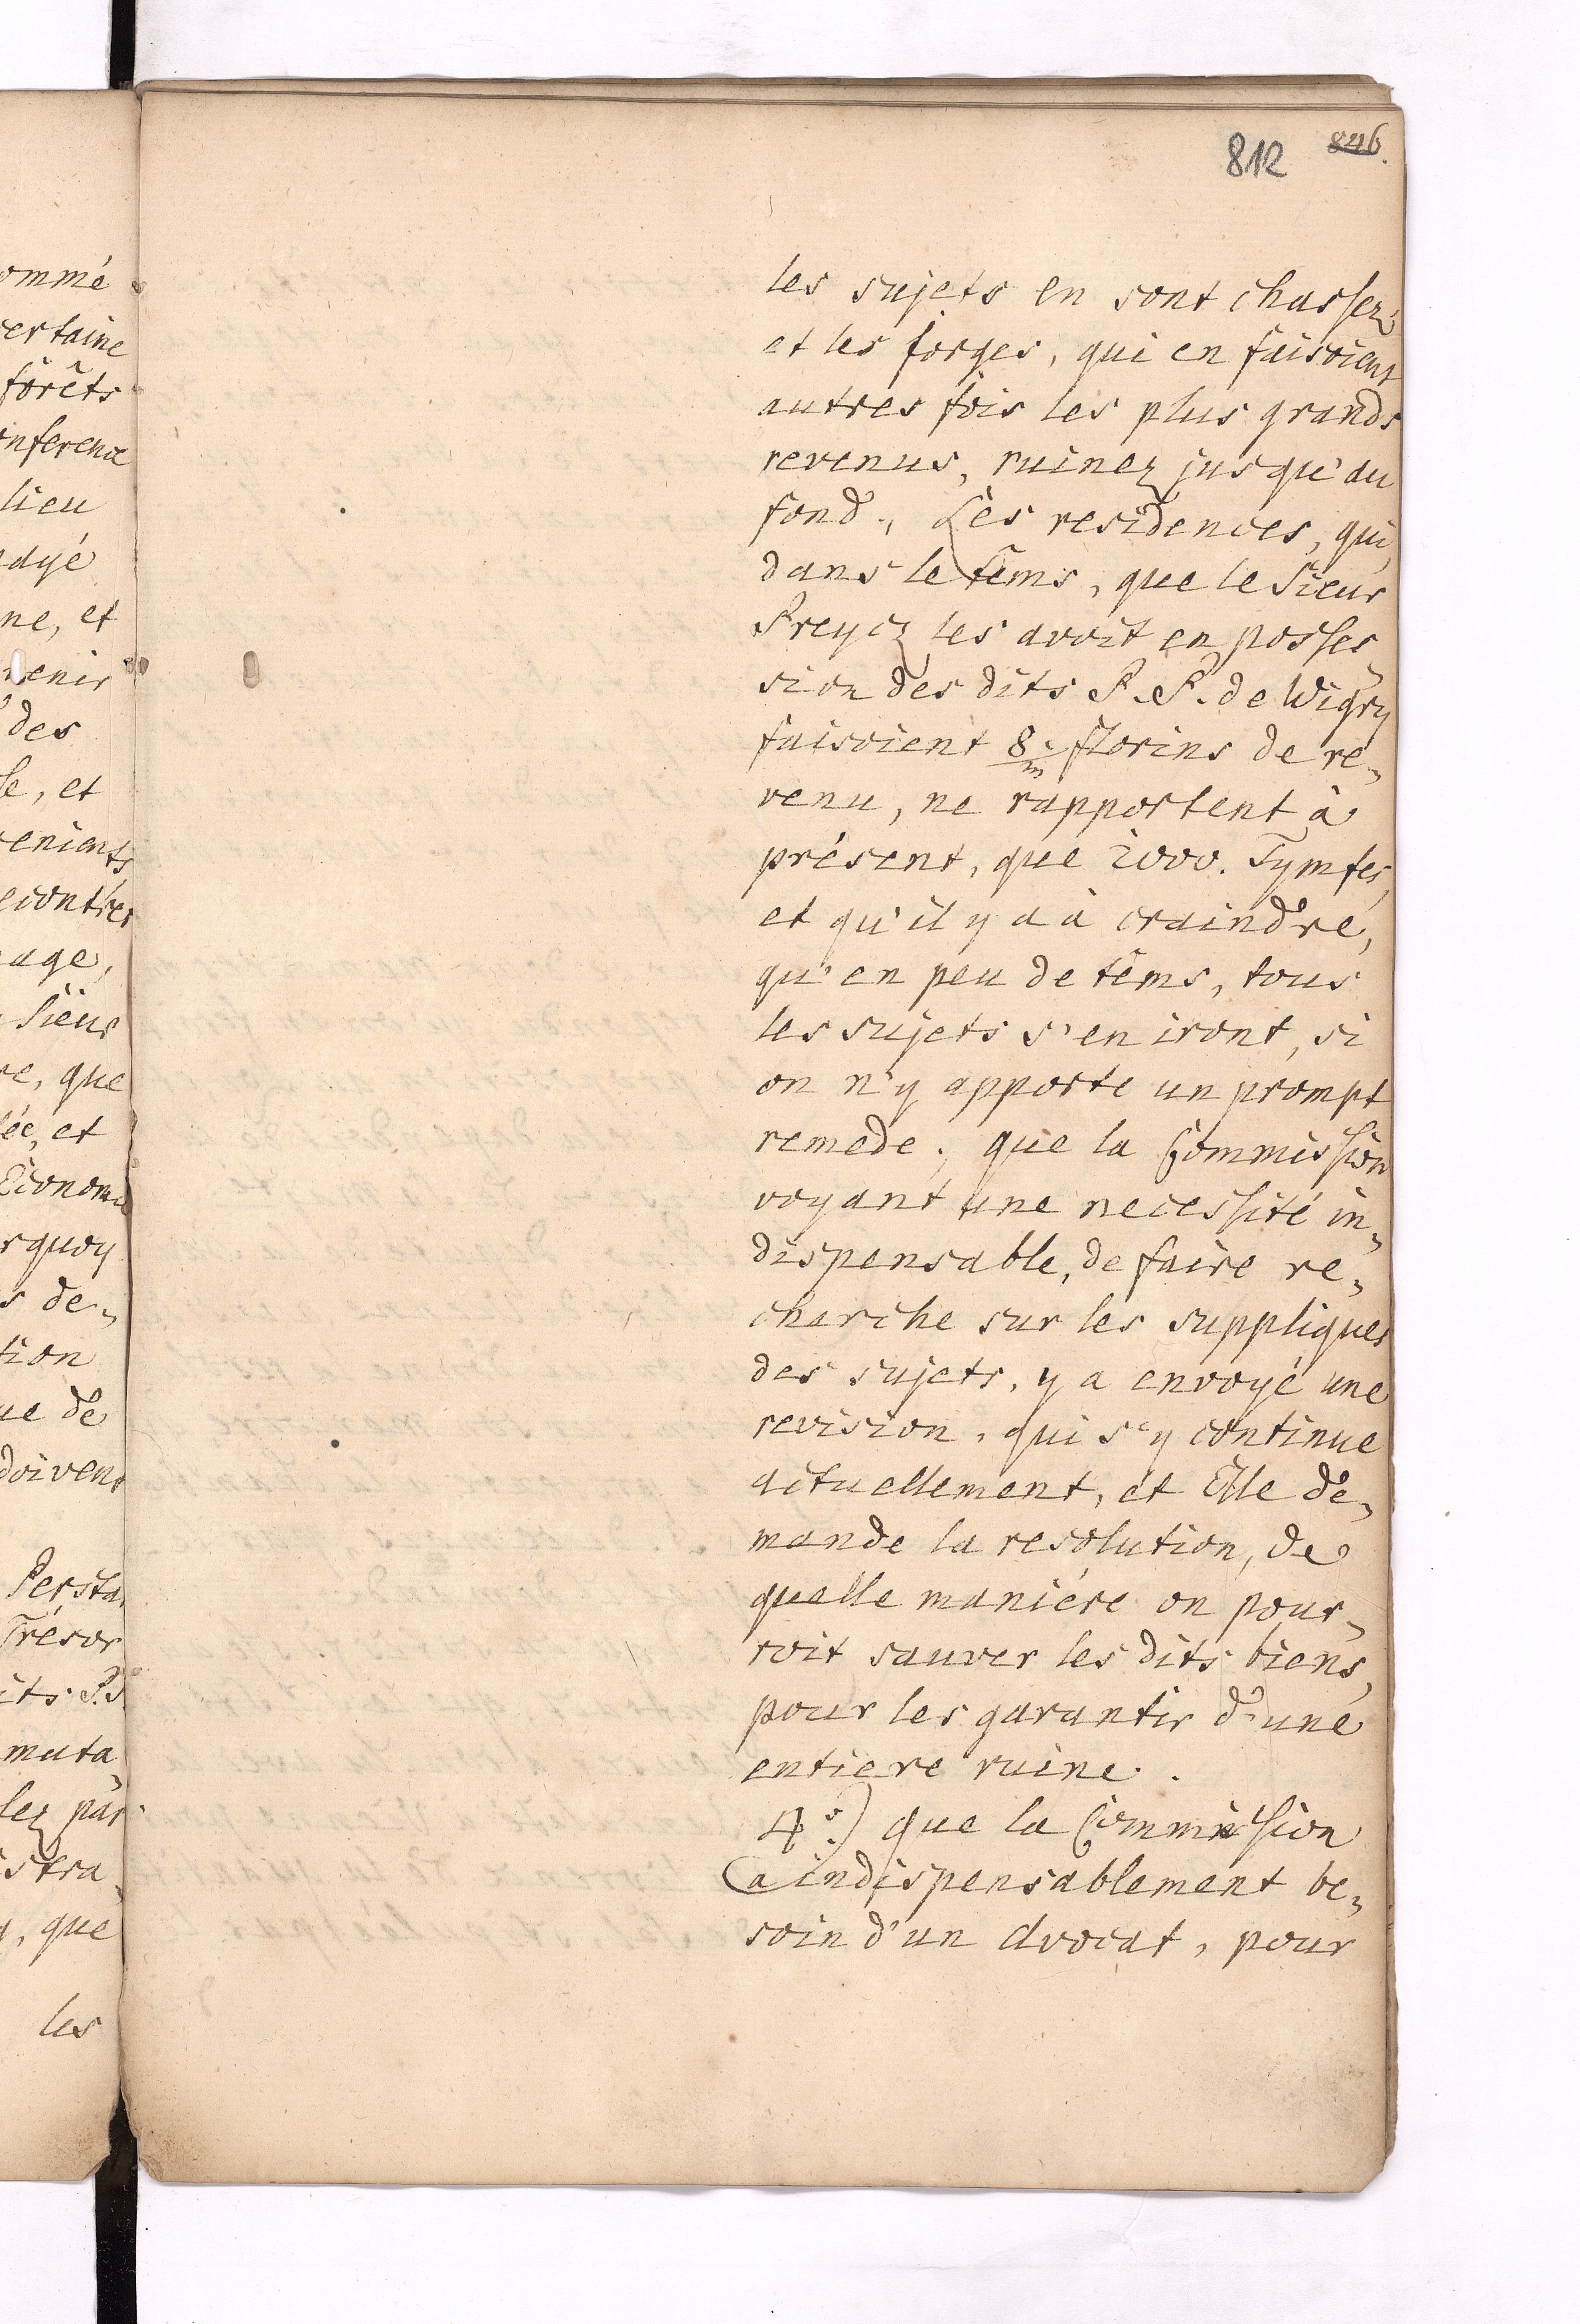 812 846.
les sujets en sont chassez,
et les forges, qui en faisoient
autres fois les plus grands
revenus, ruinez jusqu'au
fond., Les residences, qui,
dans le têms, que le Sieur
Preycz les avoit en posses
sion des dits P.P. de Wigry
faisoient 8/m florins de re„
venu, ne rapportent à
présent, que 2000. Tymfes,
et qu'il y a à craindre,
qu'en peu de têms, tous
les sujets s'en iront, si
on n'y apporte un prompt
remede; que la Commission
voyant une necessité in„
dispensable, de faire re„
cherche sur les suppliques
des sujets, y a envoyé une
revision, qui s'y continue
actuellement, et Elle de„
mande la resolution, de
quelle maniére on pour„
roit sauver les dits biens,
pour les garantir d'une
entiere ruine.
4°.) que la Commission
a indispensablement be„
soin d'un Avocat, pour
ommé
certaine
forêts
onference
lieu
adyé
ne, et
venir
des
se, et
venients
econtres
age,
Sieur
re, que
ée, et
Economie
rquoy
s de„
tion
ue de
doivent
Persta
Trésor
its P.P.
muta
lez par
istra
, que
les